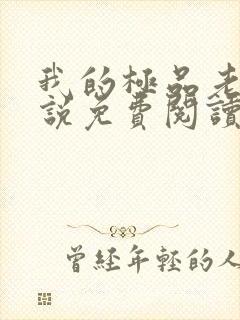 我的極品老
說免費閱讀
曾經年輕的人